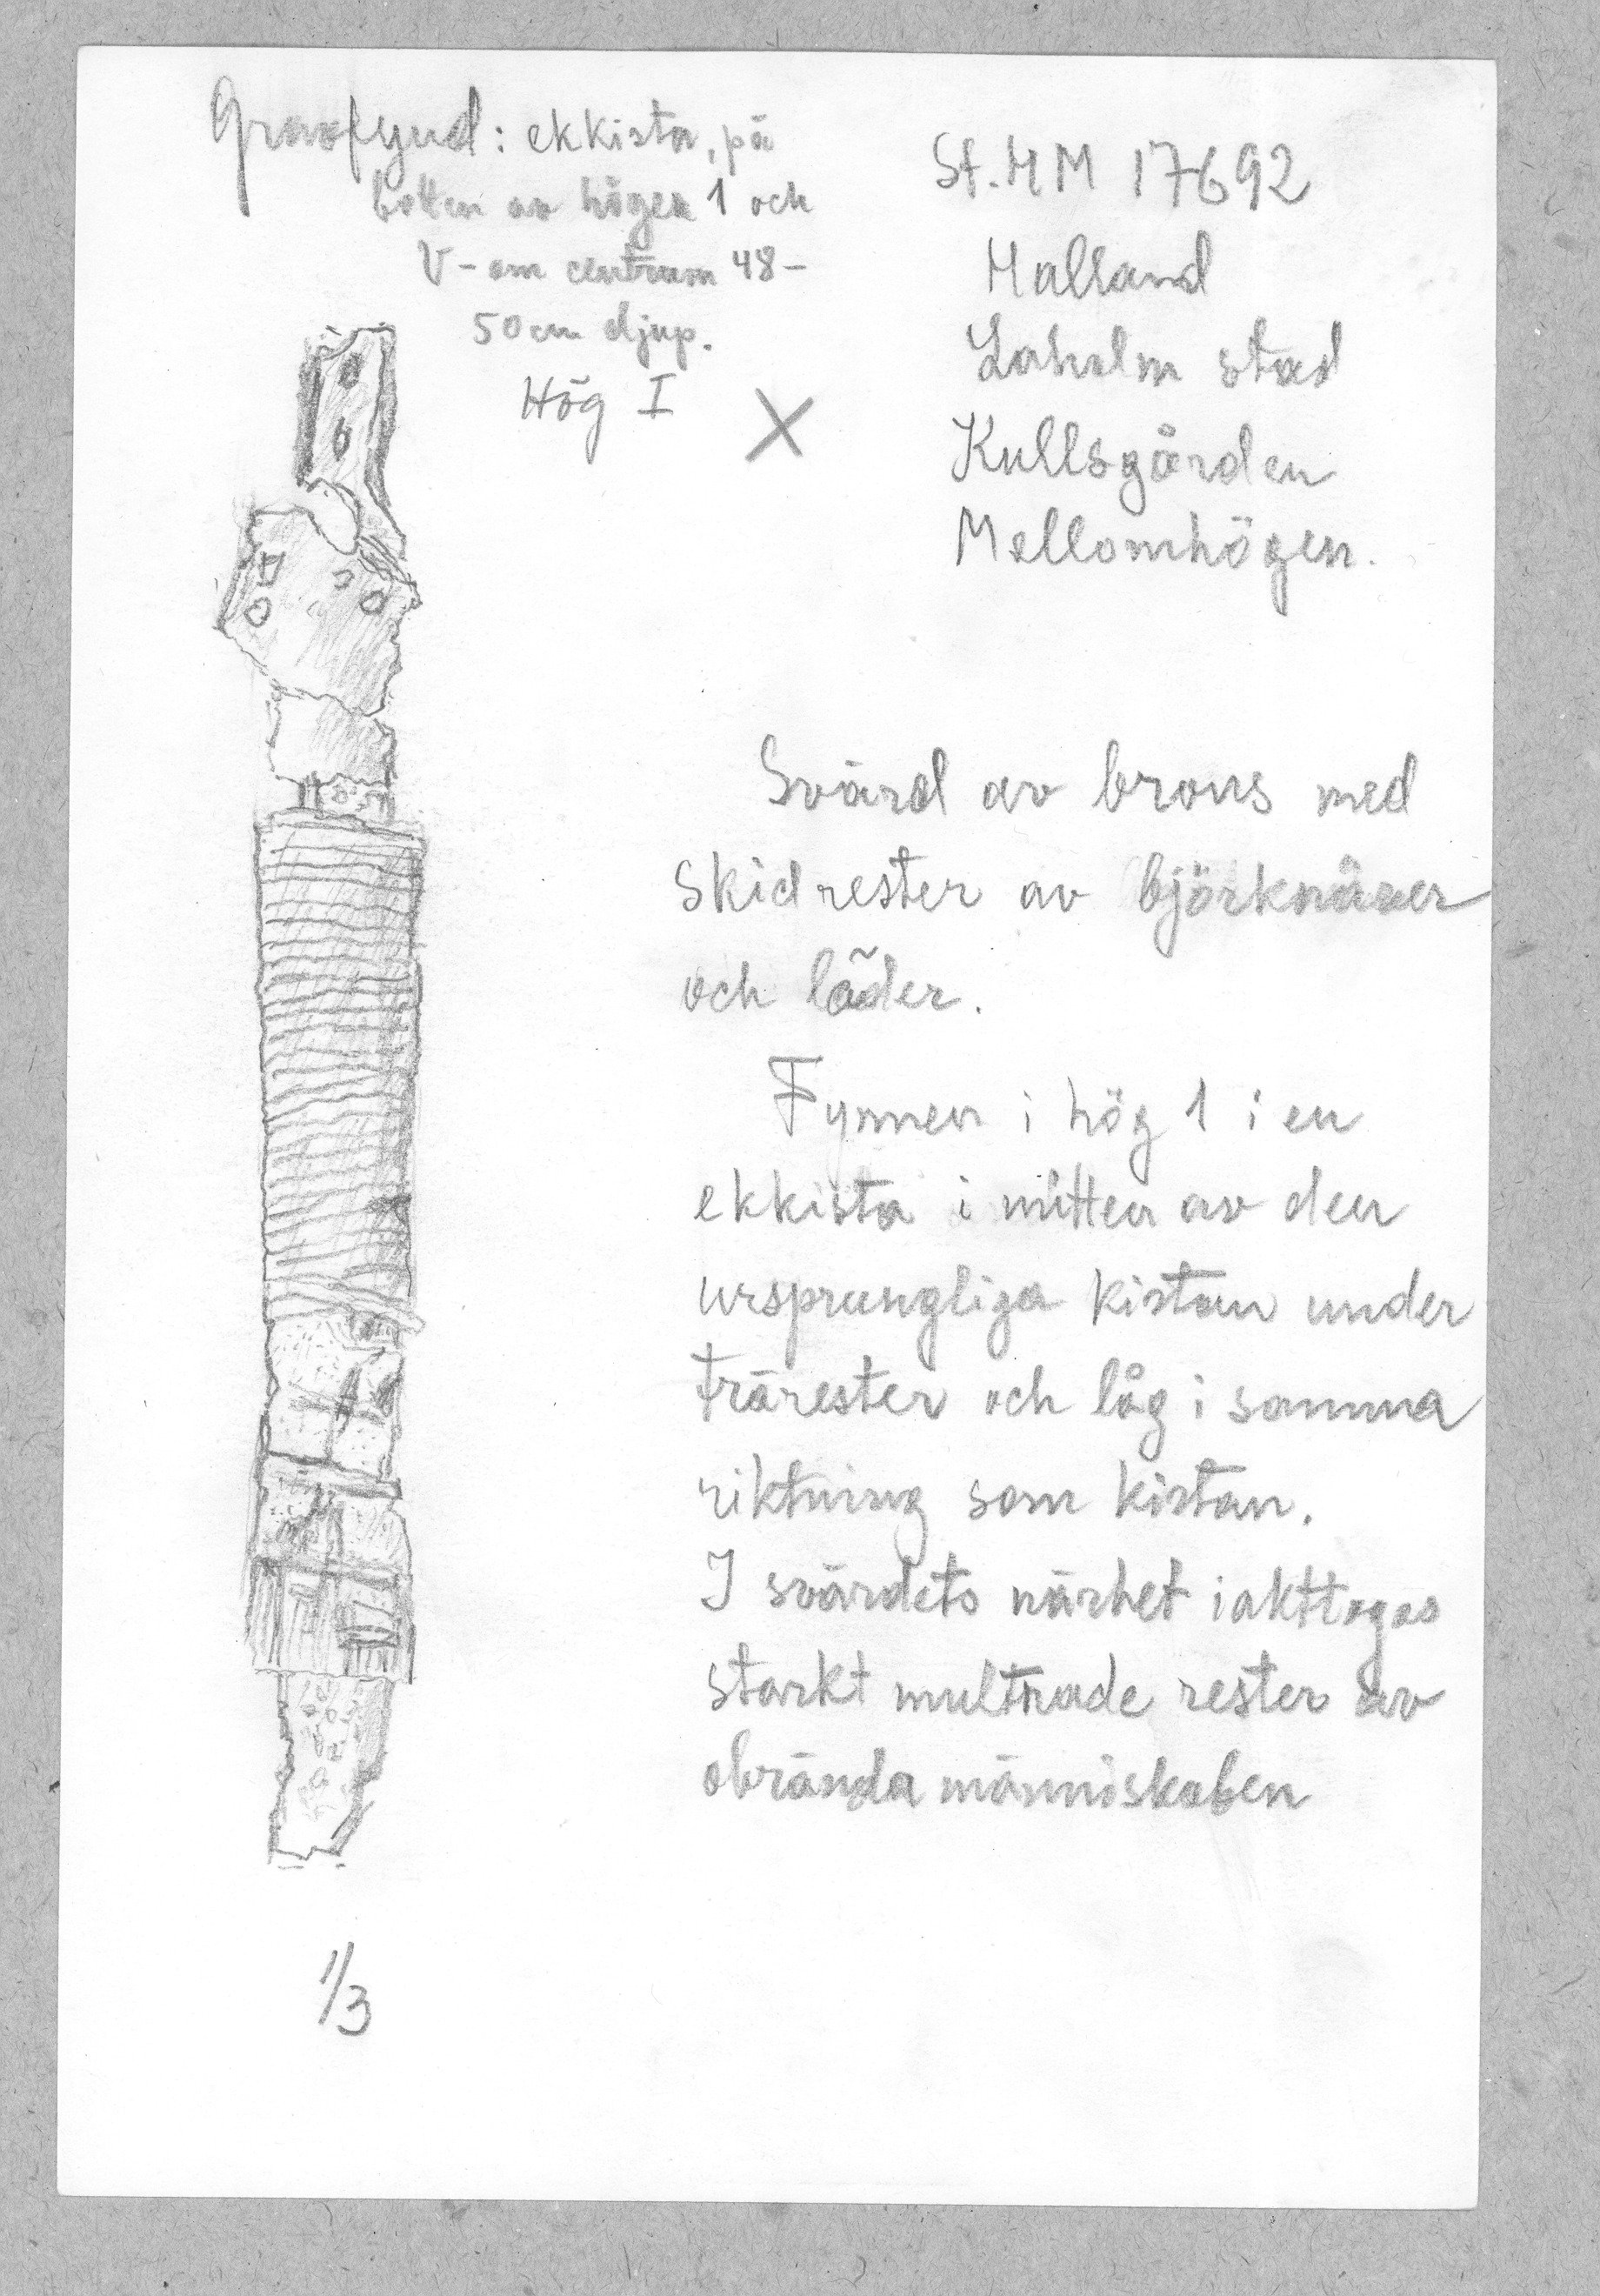 Gravfynd: ekkista, på
botten av högen 1 och
V-om centrum 48-
50 cm djup.
Hög I X
St. HM 17692
Halland
Laholm stad
Kullsgården
Mellomhögen.
Svärd av brons med
skidrester av björknäver
och läder.
Fynnen i hög 1 i en
ekkista i mitten av den
ursprungliga kistan under
trärester och låg i samma
riktning som kistan.
I svärdets närhet iakttogos
starkt multnade rester av
obrända människoben
1/3